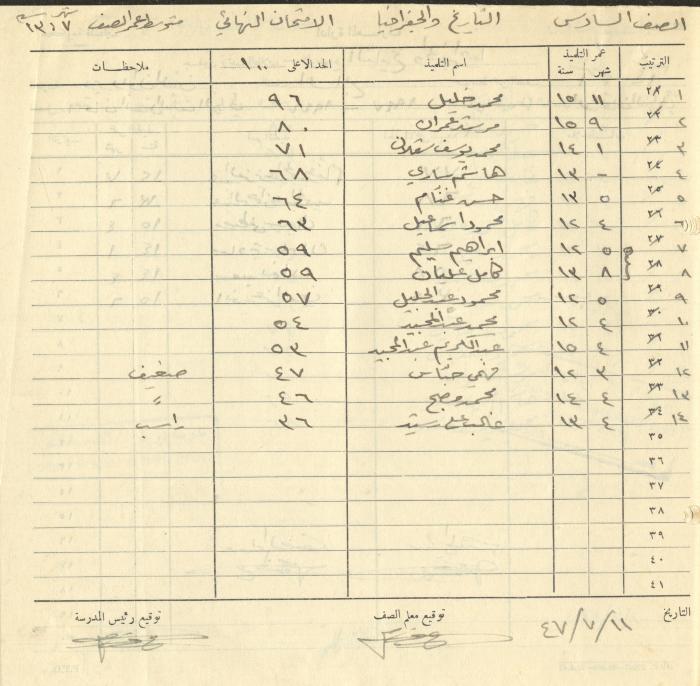 الصف السادس التاريخ والجغرافيا الامتحان النهائي متوسط عمر الصف شهر سنة ١٣،٧
الترتيب عمر التلميذ شهر سنة اسم التلميذ الحد الاعلى ١٠٠ ملاحظات
٢١ ١ ١١ ١٥ محمد خليل ٩٦
٢٢ ٢ ٩ ١٥ مرشد عمران ٨٠
٢٣ ٣ ١ ١٤ محمد يوسف ٧١
٢٤ ٤ - ١٣ هاشم ساري ٦٨
٢٥ ٥ ٥ ١٣ حسن غنام ٦٤
٢٦ ٦ ٤ ١٢ محمود اسماعيل ٦٣
٢٧ ٧ ٥ ١٢ ابراهيم سليم ٥٩
٢٨ ٨ ٨ ١٣ كامل عليان ٥٩
٢٩ ٩ ٥ ١٢ محمود عبد الجليل ٥٧
٣٠ ١٠ ٢ ١٢ محمد عبد المجيد ٥٤
٣١ ١١ ٤ ١٥ عبد الكريم عبد المجيد ٥٣
٣٢ ١٢ ٣ ١٢ فهمي ٤٧ ضعيف
٣٣ ١٣ ٤ ١٤ محمد ٤٦ "
٣٤ ١٤ ٤ ١٣ غالب علي رشيد ٣٦ راسب
٣٥
٣٦
٣٧
٣٨
٣٩
٤٠
٤١
التاريخ ١١/٧/٤٧ توقيع معلم الصف توقيع رئيس المدرسة